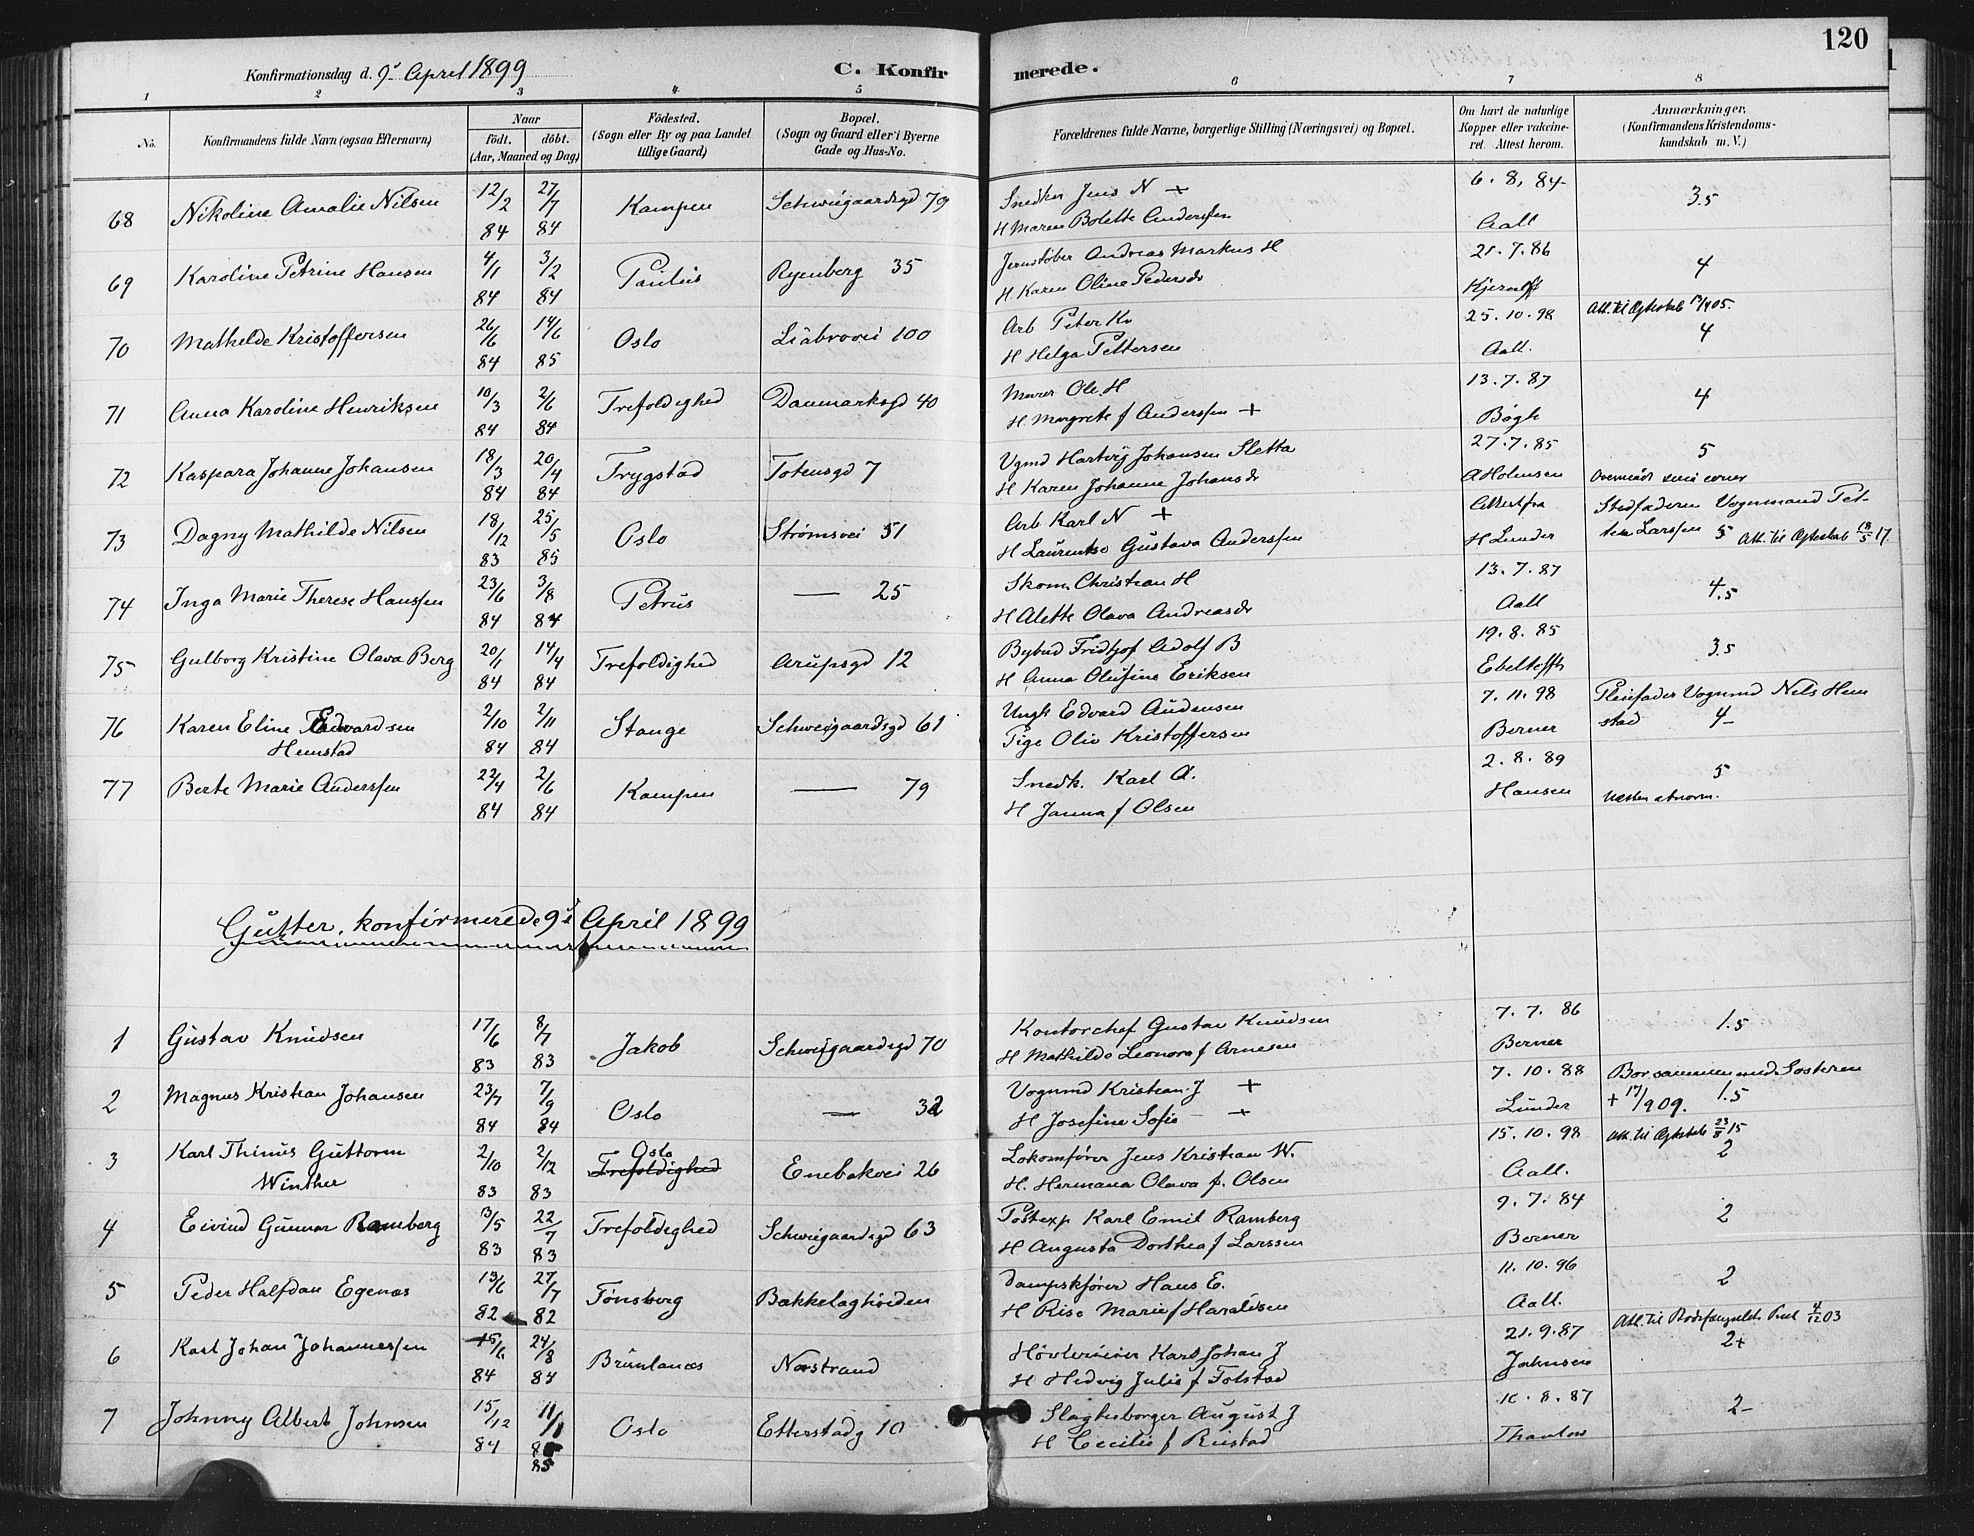 120
Konfirmationsdag d. 9' April 1899 C. Konfirmerede.
1 2 3 4 5 6 7 8
No. Konfirmandens fulde Navn (ogsaa Efternavn) Naar födt. döbt. (Aar, Maaned og Dag) Födested. (Sogn eller By og paa Landet tillige Gaard) Bopæl. (Sogn og Gaard eller i Byerne Gade og Hus-No. Forældrenes fulde Navne, borgerlige Stilling (Næringsvei) og Bopæl. Om havt de naturlige Kopper eller vakcineret. Attest herom. Anmærkninger. (Konfirmandens Kristendomskundskab m. V.)
68 Nikoline Amalie Nilsen 12/2 84 27/7 84 Kampen Schweigaardsgd 79 Snedker Jens N + 6. 8. 84 3.5
H Maren Bolette Anderssen Aall
69 Karoline Petrine Hansen 4/1 84 3/2 84 Paulus Ryenberg 35 Jernstøber Andreas Markus H 21. 7. 86 4
H Karen Oline Pedersdr Kjerulff
70 Mathilde Kristoffersen 26/6 84 14/6 85 Oslo Liabrovei 100 Arb Peter Kr 25. 10. 98 Att. til Ægteskab 05. 4
H Helga Pettersen Aall.
71 Anna Karoline Henriksen 10/3 84 2/6 84 Trefoldighed Danmarksgd 40 Murer Ole H 13. 7. 87 4
H. Margrete f Anderssen + Bøgh
72 Kaspara Johanne Johansen 18/3 84 20/4 84 Trygstad Totensgd 7 Vgmd Hartvig Johansen Sletta 27. 7. 85 5
H Karen Johanne Johansdr A Holmsen
73 Dagny Mathilde Nilsen 18/12 83 25/5 85 Oslo Strømsvei 51 Arb Karl N + Attest fra Stedfaderen Vognmand Pet-
H Laurentse Gustava Anderssen H Lunder ter Larssen 5 Att. til Ægteskab 18/5 17
74 Inga Marie Therese Hanssen 23/6 84 3/8 84 Petrus — 25 Skom. Christian H 13. 7. 87 4.5
H Alette Olava Andreasdr Aall
75 Gulborg Kristine Olava Berg 20/1 84 14/4 84 Trefoldighed Arupsgd 12 Bybud Fridtjof Adolf B 19. 8. 85 3.5
H Anna Olufine Eriksen Ebeltofft
76 Karen Eline Edvardsen 2/10 84 2/11 84 Stange Schweigaardsgd 61 Ungk Edvard Audensen 7. 11. 98 Pleiefader Vognmd Nels Hem
Hemstad Pige Oliv Kristoffersen Berner stad 4-
77 Berte Marie Anderssen 22/4 84 2/6 84 Kampen — 79 Snedk. Karl A. 2. 8. 89 5
H Janna f Olsen Hansen Næsten abnorm.
Gutter, konfirmerede 9' April 1899
1 Gustav Knudsen 17/6 83 8/7 83 Jakob Schweigaardsgd 70 Kontorchef Gustav Knudsen 7. 7. 86 1.5
H Mathilde Leonora f Arnesen Berner
2 Magnus Kristian Johansen 23/7 84 7/9 84 Oslo — 32 Vognmd Kristian J + 7. 10. 88 Bor sammen med Søsteren
H Josefine Sofie — + Lunder + 17/9 09. 1.5
3 Karl Thinus Guttorm 2/10 83 2/12 83 Oslo Trefoldighed Enebakvei 26 Lokomfører Jens Kristian W. 15. 10. 98 Att. til Ægteskab 23/8 15 2
Winther H. Hermana Olava f. Olsen Aall.
4 Eivind Gunnar Ramberg 13/5 83 22/7 83 Trefoldighed Schweigaardsgd 63 Postexp Karl Emil Ramberg 9. 7. 84 2
H Augusta Dorthea f Larssen Berner
5 Peder Halfdan Egenæs 13/6 82 27/7 82 Tønsberg Bækkelagshøiden Dampskfører Hans E. 11. 10. 96 2
H Rise Marie f Haraldsen Aall.
6 Karl Johan Johannessen 15/6 84 24/8 84 Brunlanæs Norstrand Høvlemester Karl Johan J 21. 9. 87 4/12 03 2+
H Hedvig Julie f Tolstad Johnsen
7 Johnny Albert Johnsen 15/12 84 11/1 85 Oslo Etterstadg 10 Slagterborger August J 10. 8. 87 2-
H Cecilie f Rustad Thaulow